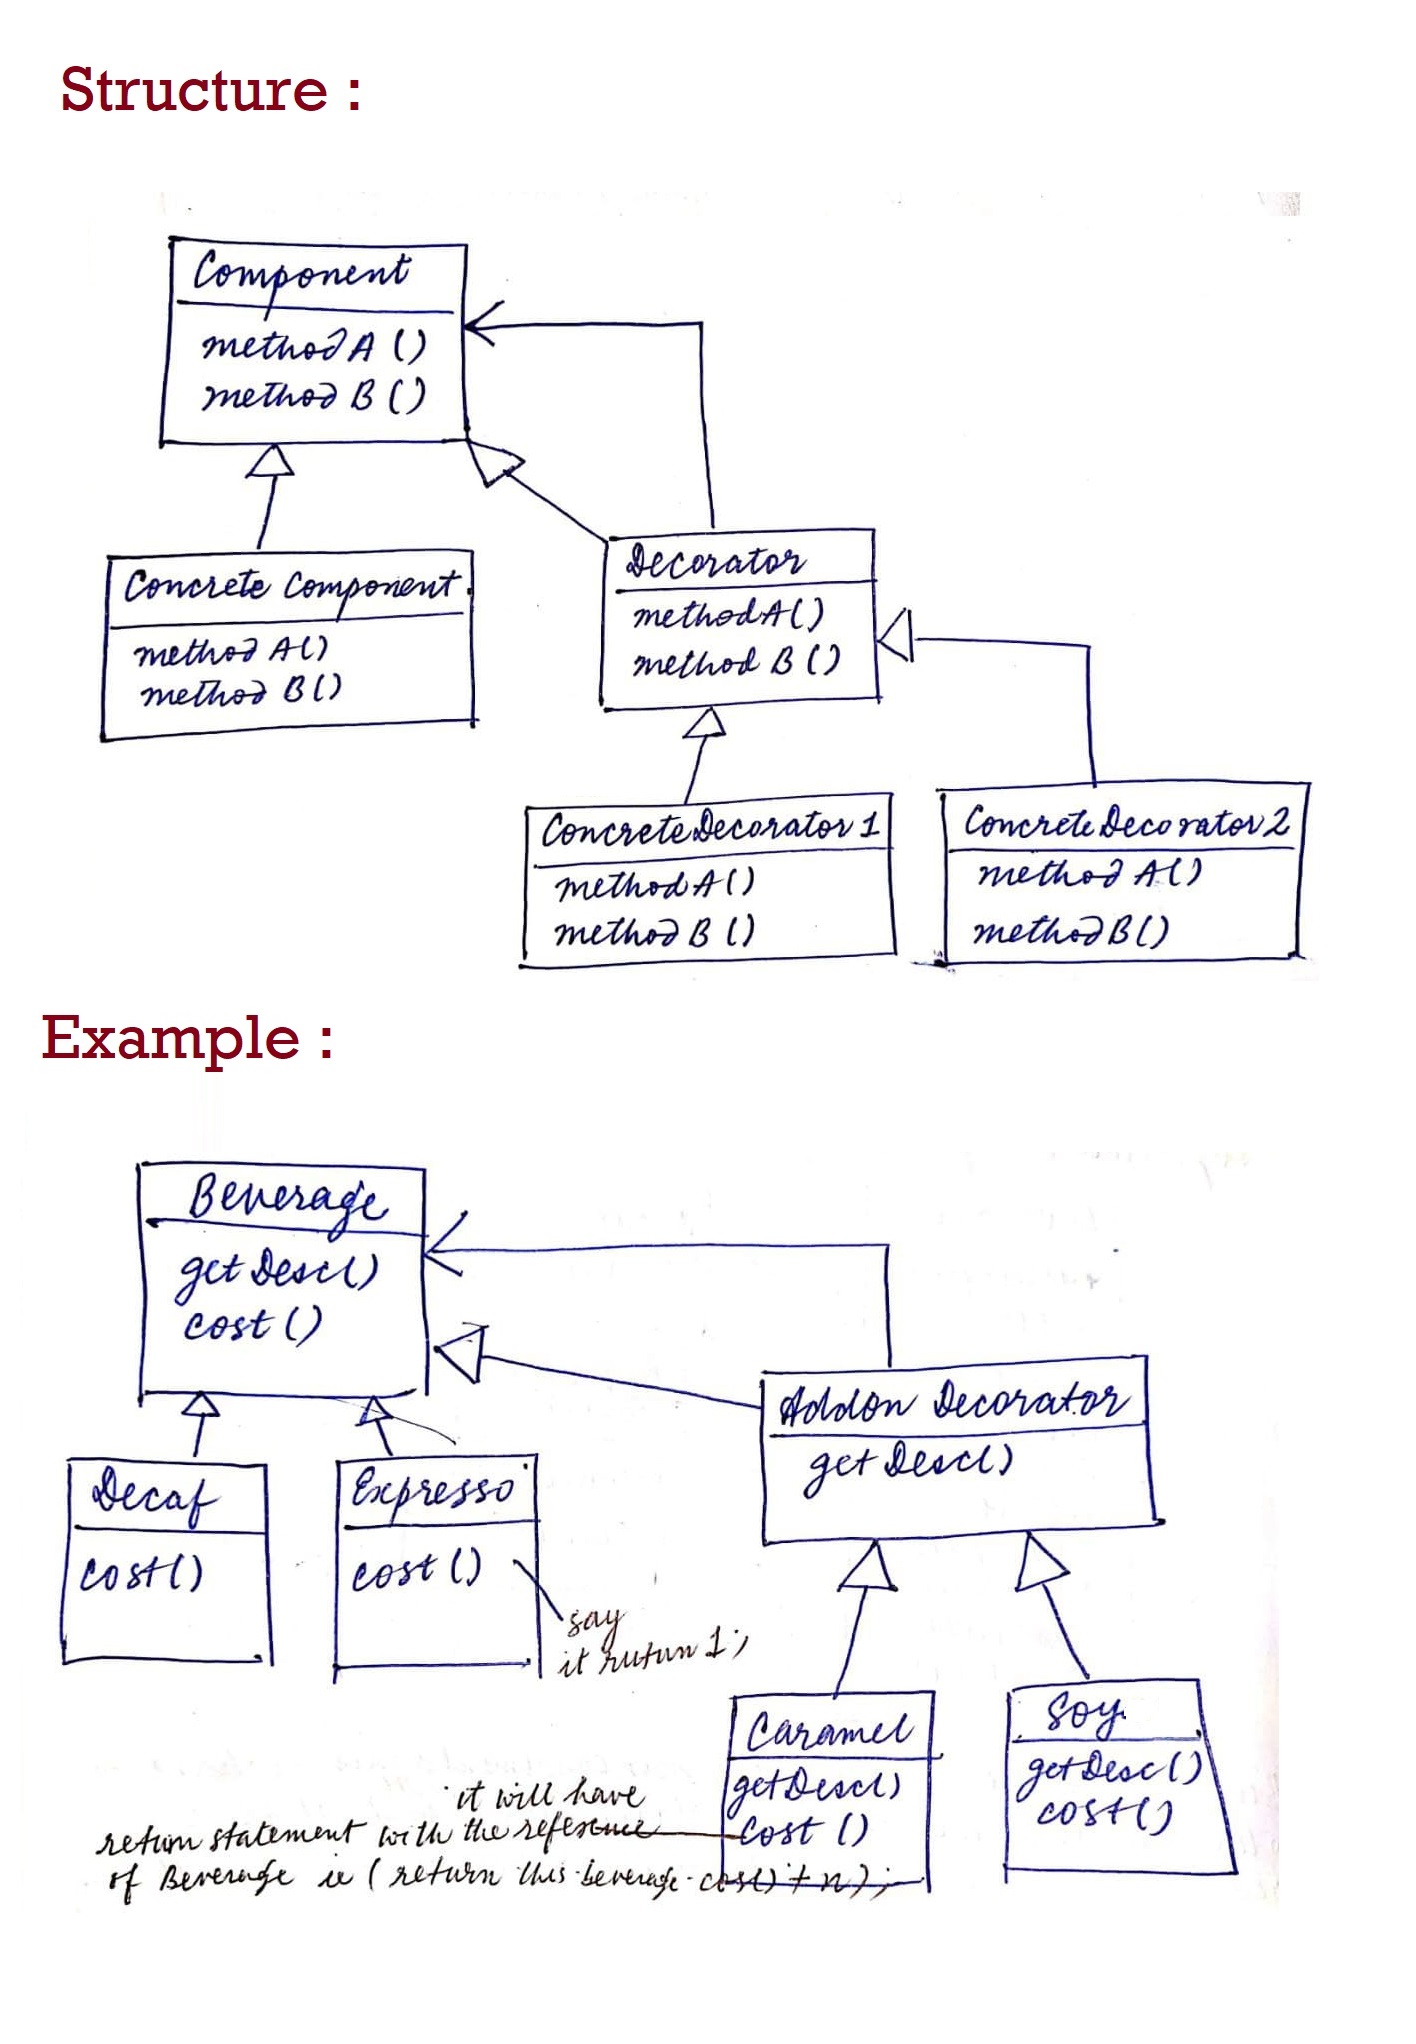 Structure :
Component
method A ()
method B ()
Concrete Component
method A()
method B()
Decorator
method A()
method B ()
ConcreteDecorator 1
method A()
method B ()
Concrete Decorator 2
method A()
method B()
Example :
Beverage
get Desc()
cost ()
Decaf
cost()
Expresso
cost ()
say
it return 1;
Addon Decorator
get Desc()
Caramel
getDesc()
cost ()
Soy
getDesc()
cost()
it will have
return statement with the reference
of Beverage ie (return this.beverage.cost() + n);